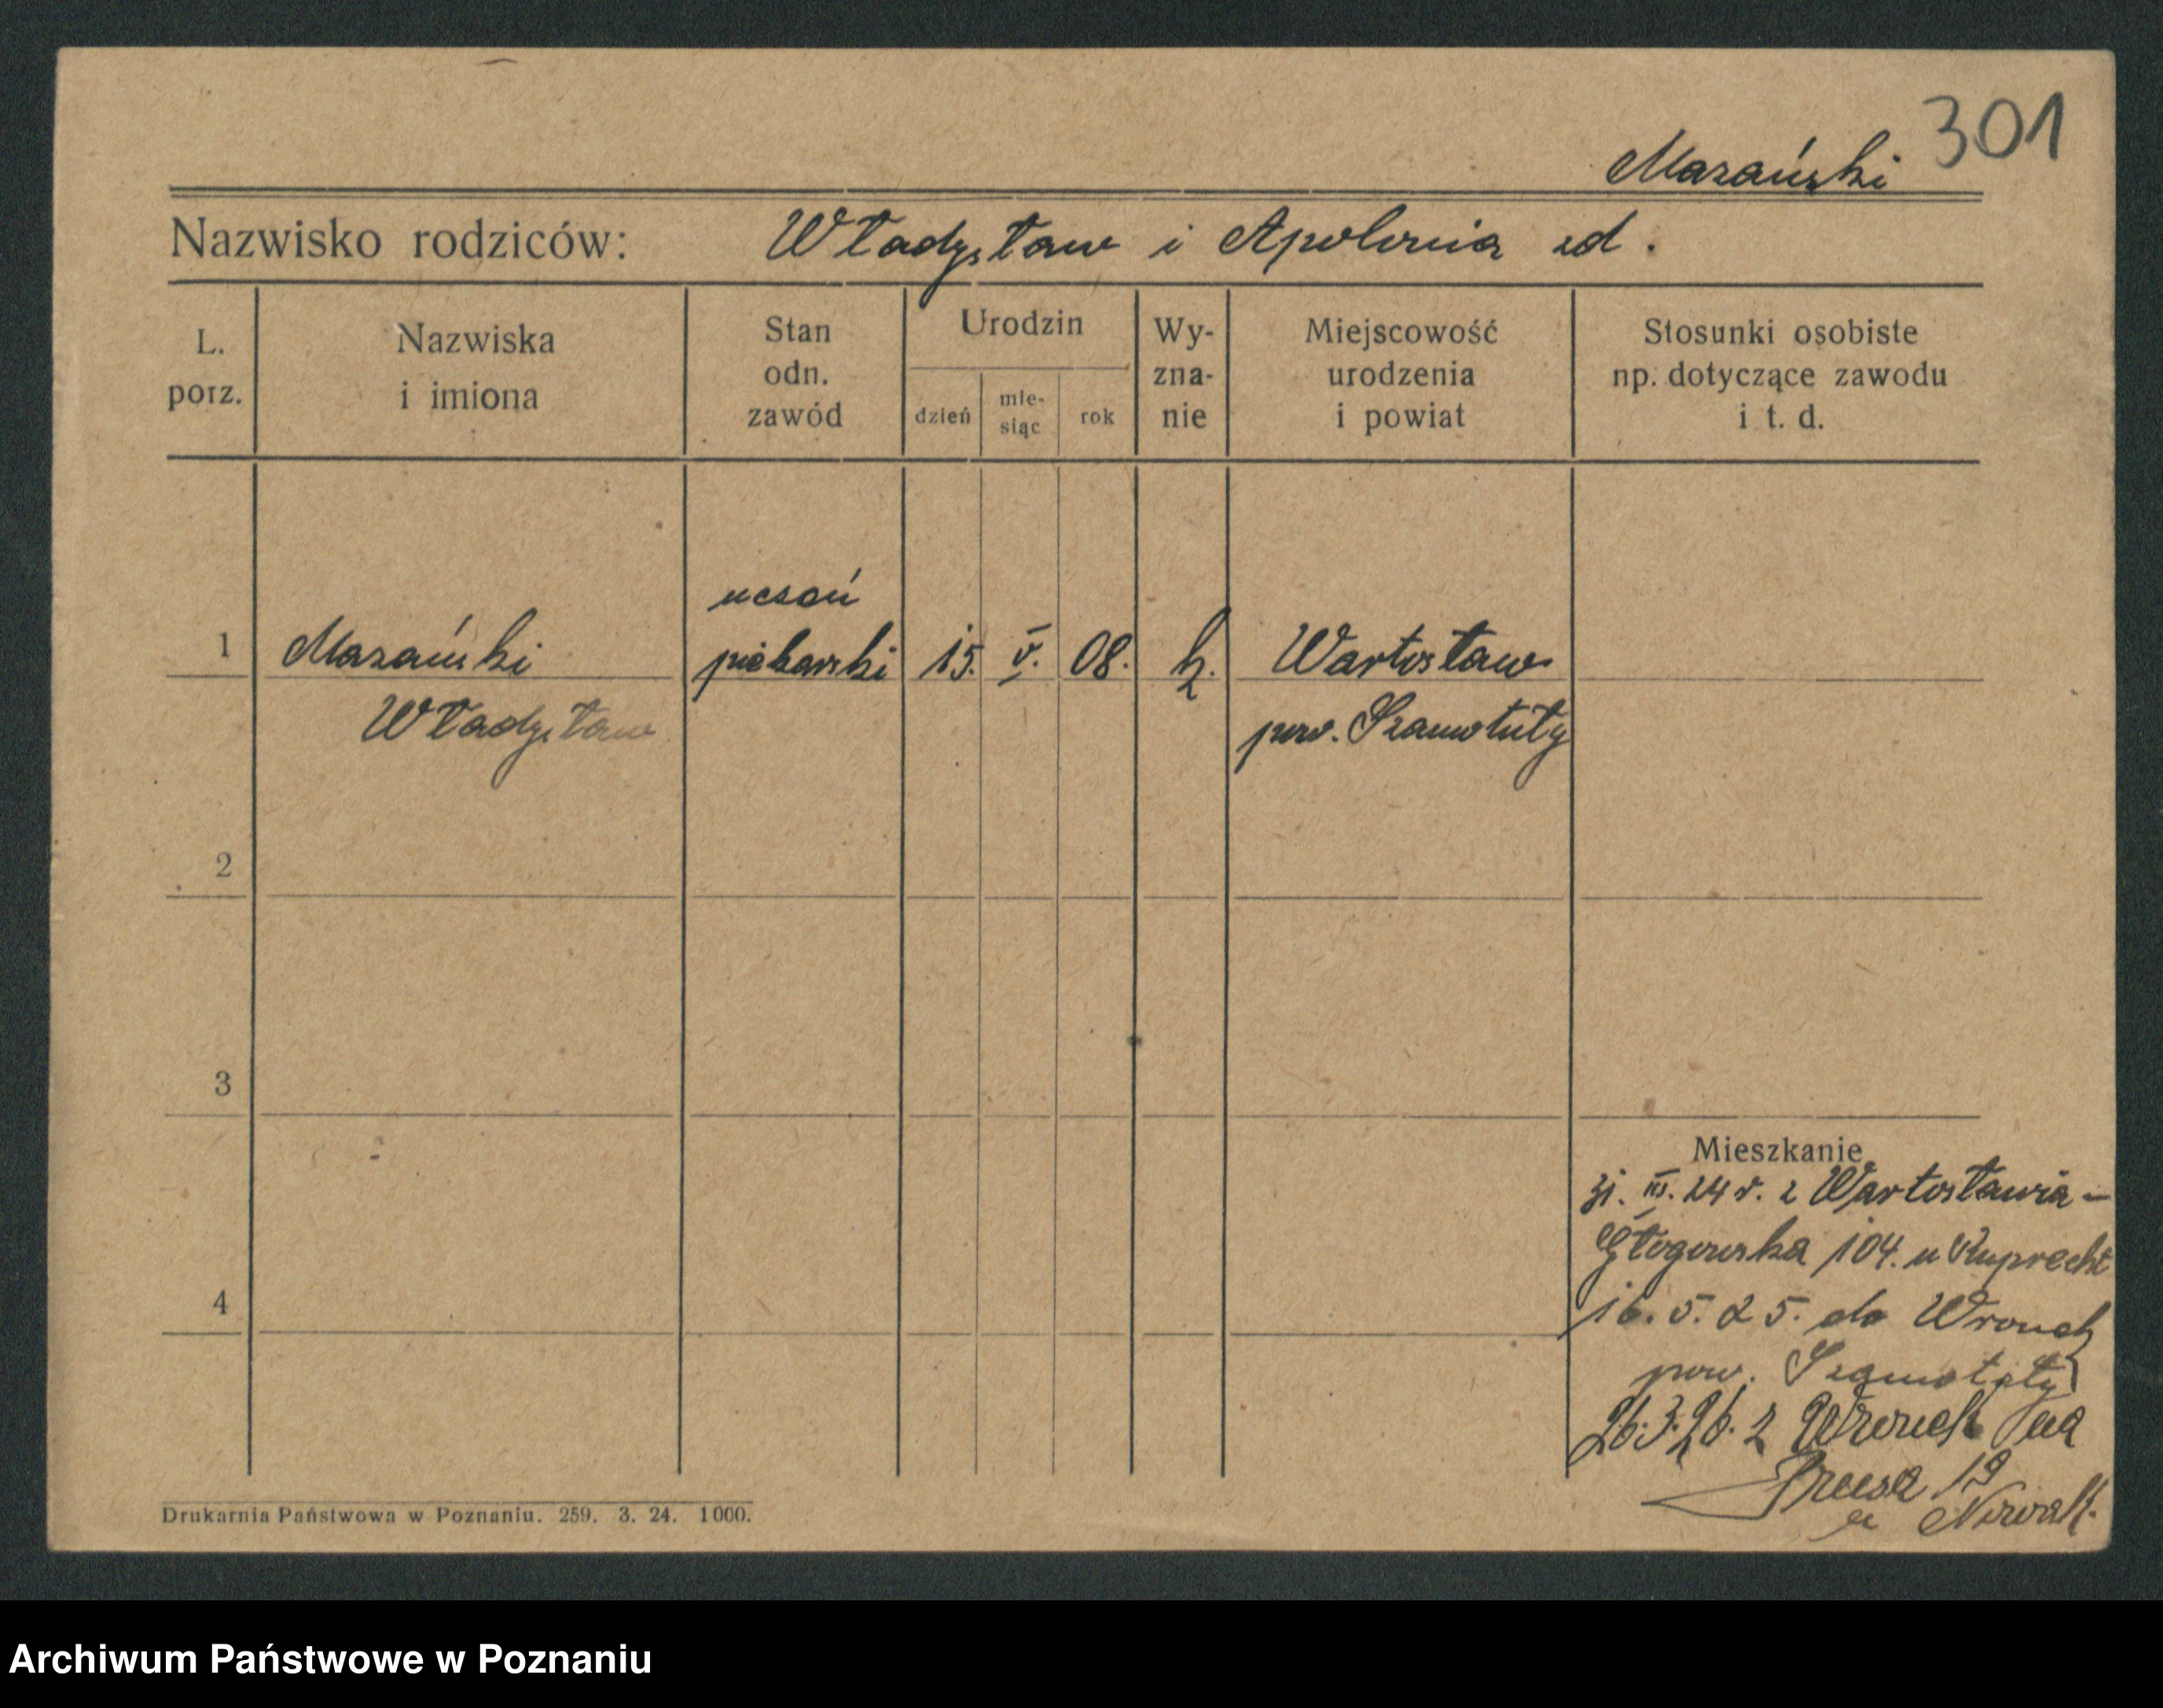 301
Mazański
Nazwisko rodziców: Władysław i Apolonia zd.
L. porz.
Nazwiska i imiona
Stan odn. zawód
Urodzin
dzień
mie-siąc
rok
Wy-zna-nie
Miejscowość urodzenia i powiat
Stosunki osobiste np. dotyczące zawodu i t. d.
uczeń
1 Mazański piekarski 15. V. 08. k. Wartosław
Władysław pow. Szamotuły
2
3
Mieszkanie
31. III. 24 r. z Wartosławia -
Głogowska 104. u Ruprecht
4
16. 5. 25. do Wronek
pow. Szamotuły
26.3.26. z Wronek na
19
u Nowak.
Drukarnia Państwowa w Poznaniu. 259. 3. 24. 1000.
Archiwum Państwowe w Poznaniu